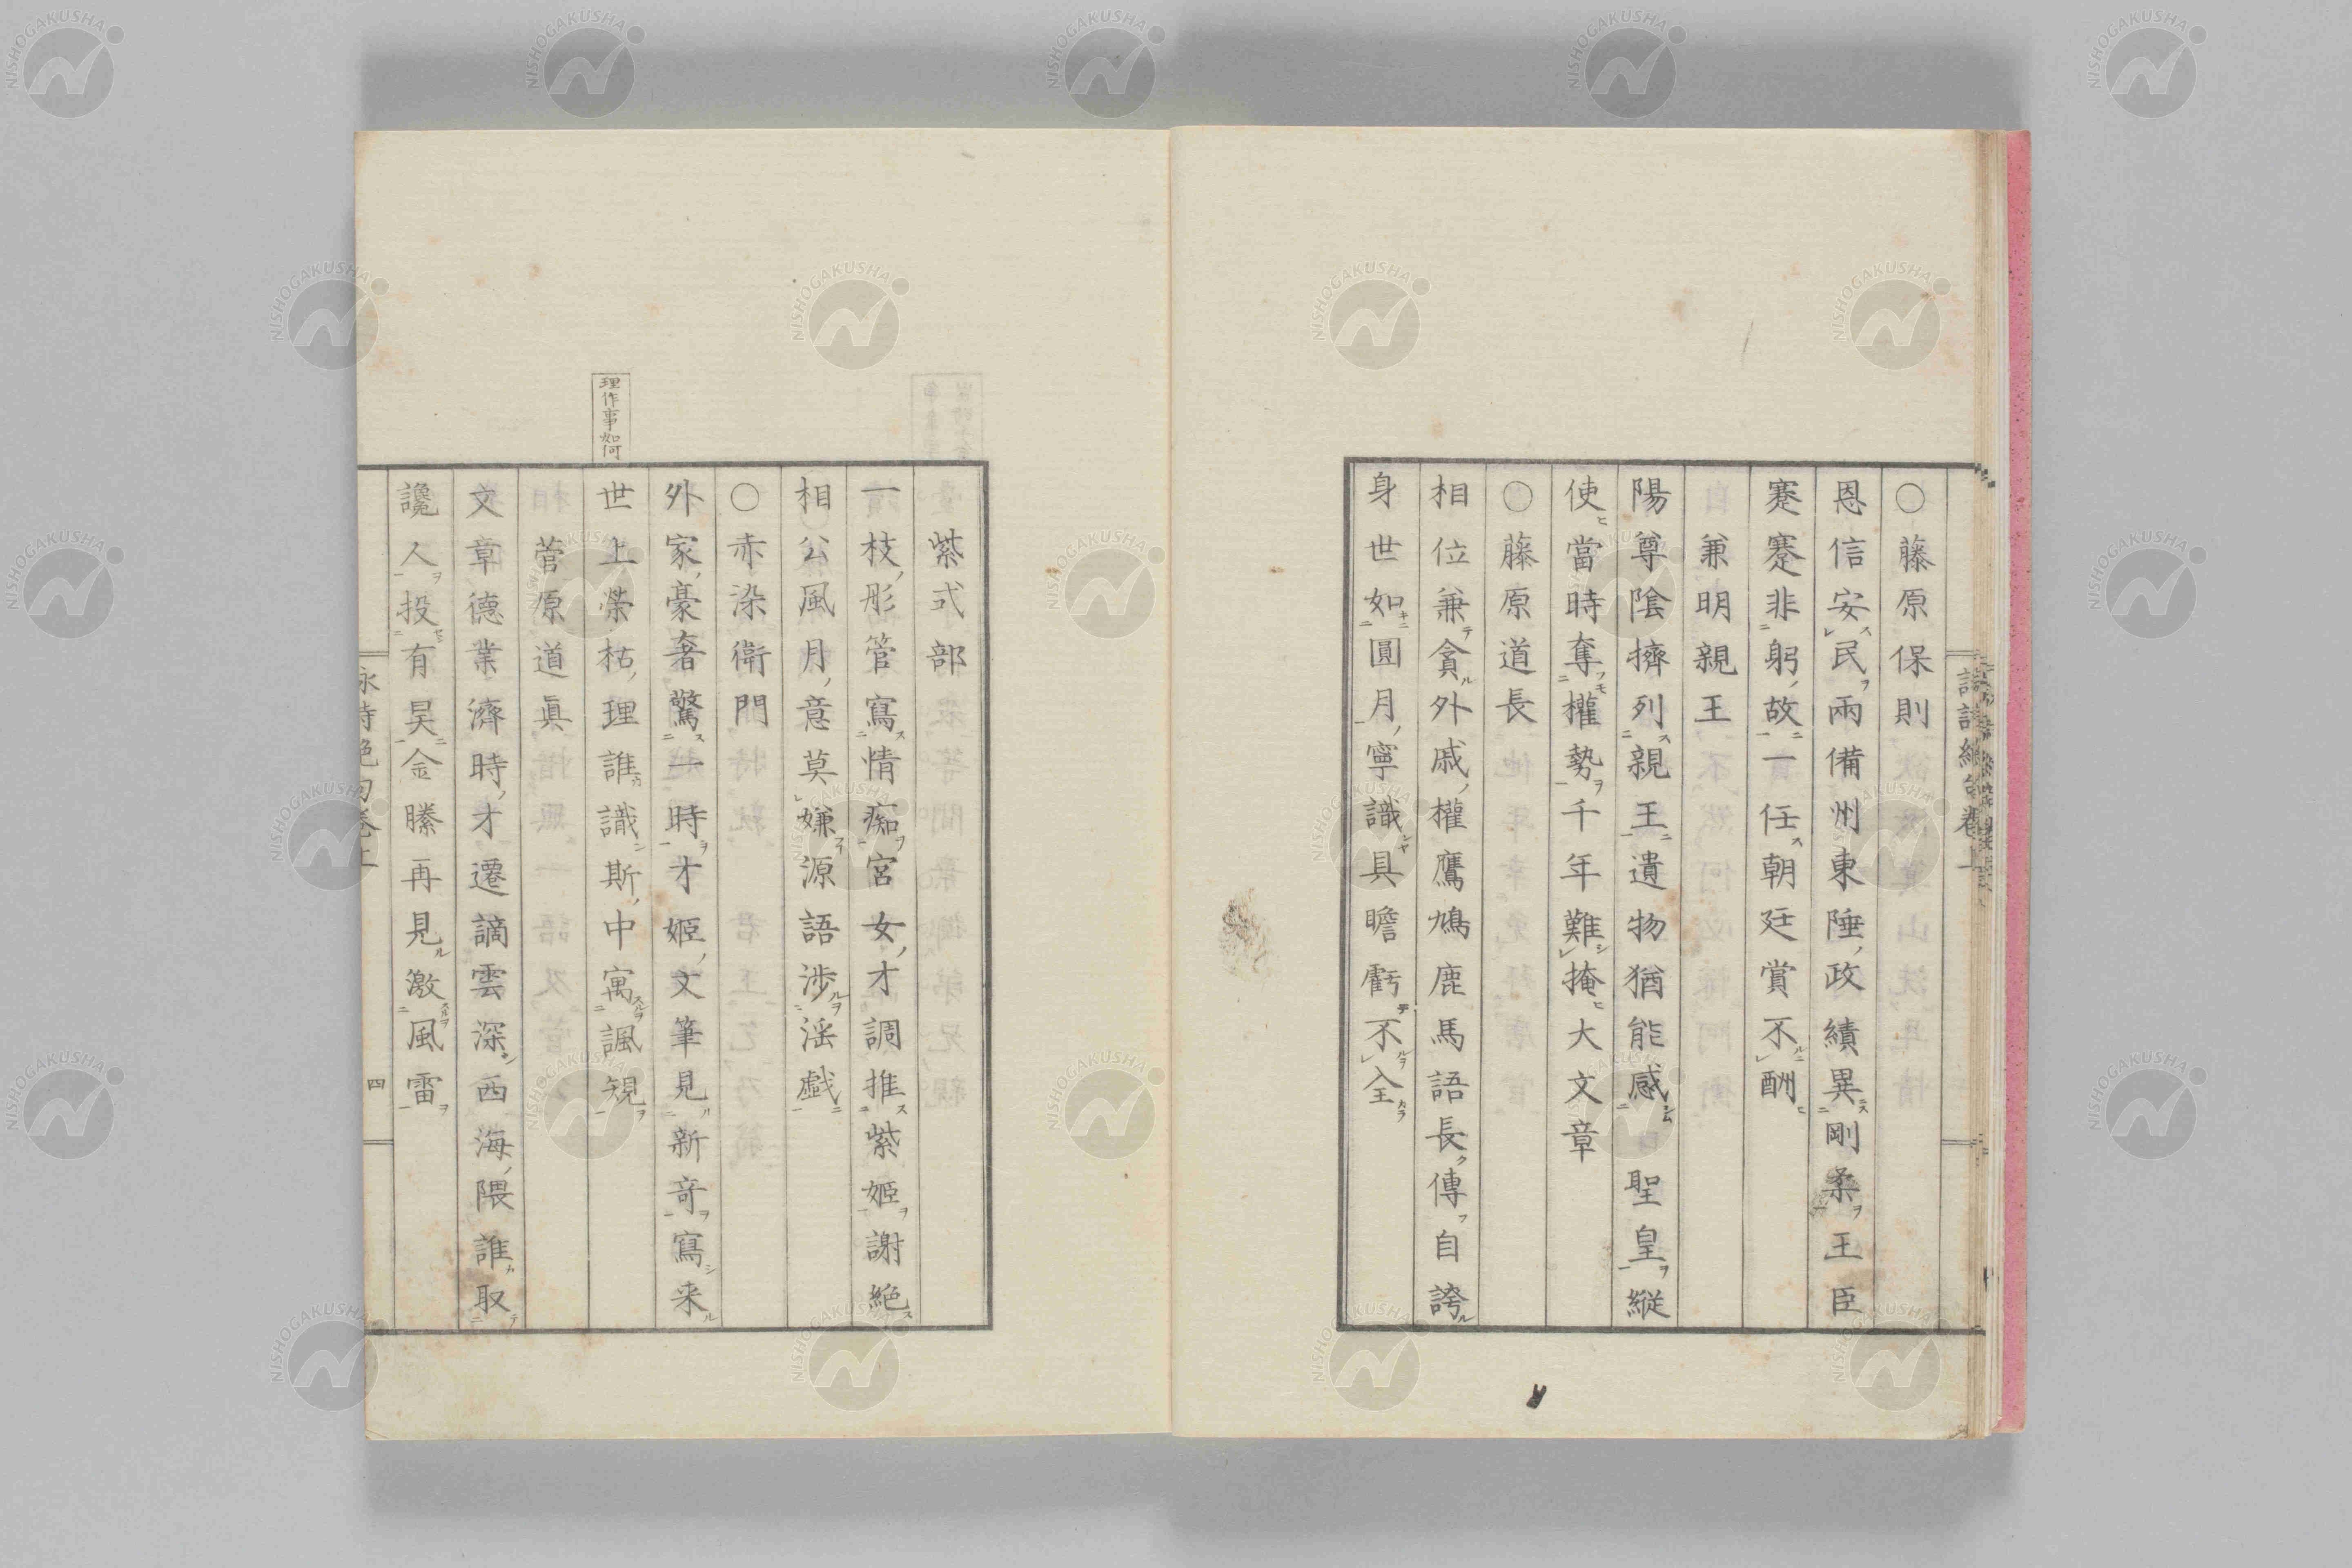 ○藤原保則
恩信安民兩備州東陲政績異剛柔王臣
蹇蹇非躬故一任朝廷賞不酬
兼明親王
陽尊陰擠列親王遺物猶能感聖皇縱
使當時奪權勢千年難掩大文章
○藤原道長
相位兼貪外戚權鷹鳩鹿馬語長傳自誇
身世如圓月寧識具瞻虧不全
紫式部
一枝彤管寫情痴宮女才調推紫姬謝絶
相公風月意莫嫌源語涉淫戲
○赤染衛門
外家豪奢驚一時才姬文筆見新奇寫来
理作事如何
世上榮枯理誰識斯中寓諷規
菅原道眞
文章德業濟時才遷謫雲深西海隈誰取
讒人投有昊金縢再見激風雷
四
NISHOGAKUSHA